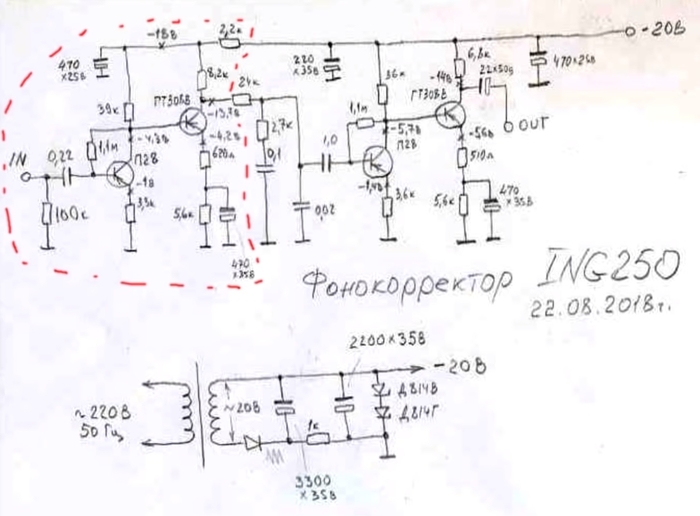 -18В
2,2к
-20В
470
×25В
220
×35В
6,8к
470×25В
8,2к
36к
-14В
22×50В
24к
39к
ПТ306В
-13,7В
1,1м
ГТ308В
-4,3В
-4,2В
2,7к
-5,7В
OUT
IN
0,22
1,1м
П28
620л
0,1
1,0
П28
-5,6В
510л
-1В
-1,4В
100к
3,3к
5,6к
0,02
3,6к
5,6к
470
×35В
470
×35В
Фонокорректор ING250
22.08.2018г.
2200×35В
-20В
~220В
50 Гц
~20В
Д814В
Д814Г
1к
3300
×35В